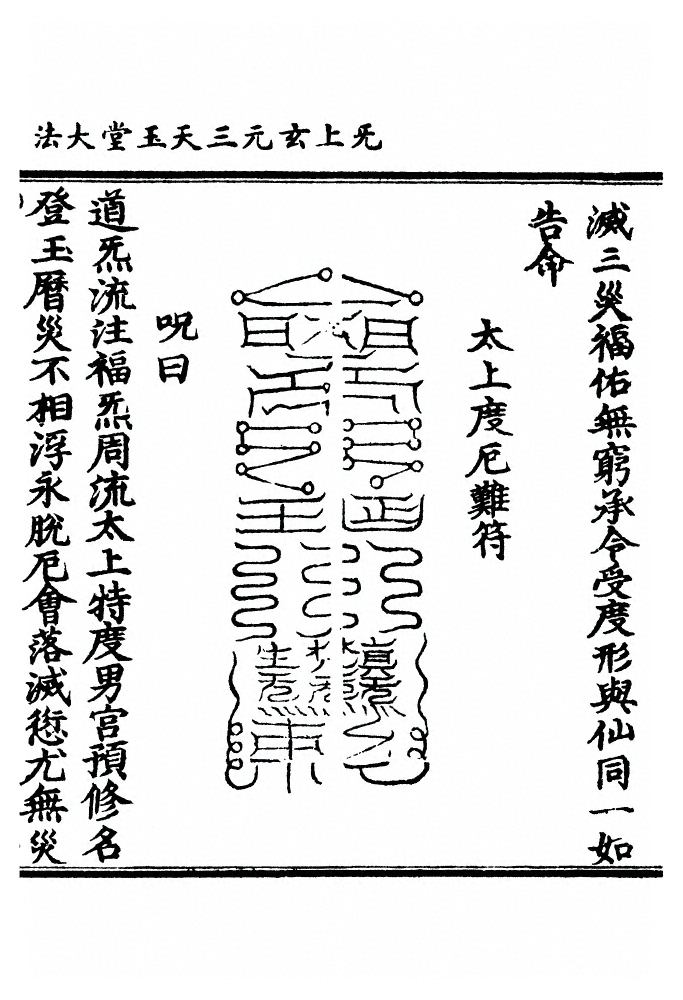 法大堂玉天三元玄上旡
滅三災福佑無窮承令受度形與仙同一如
告命
太上度厄難符
呪曰
道炁流注福炁周流太上特度男官預修名
登玉曆災不相浮永脫厄會落滅愆尤無災